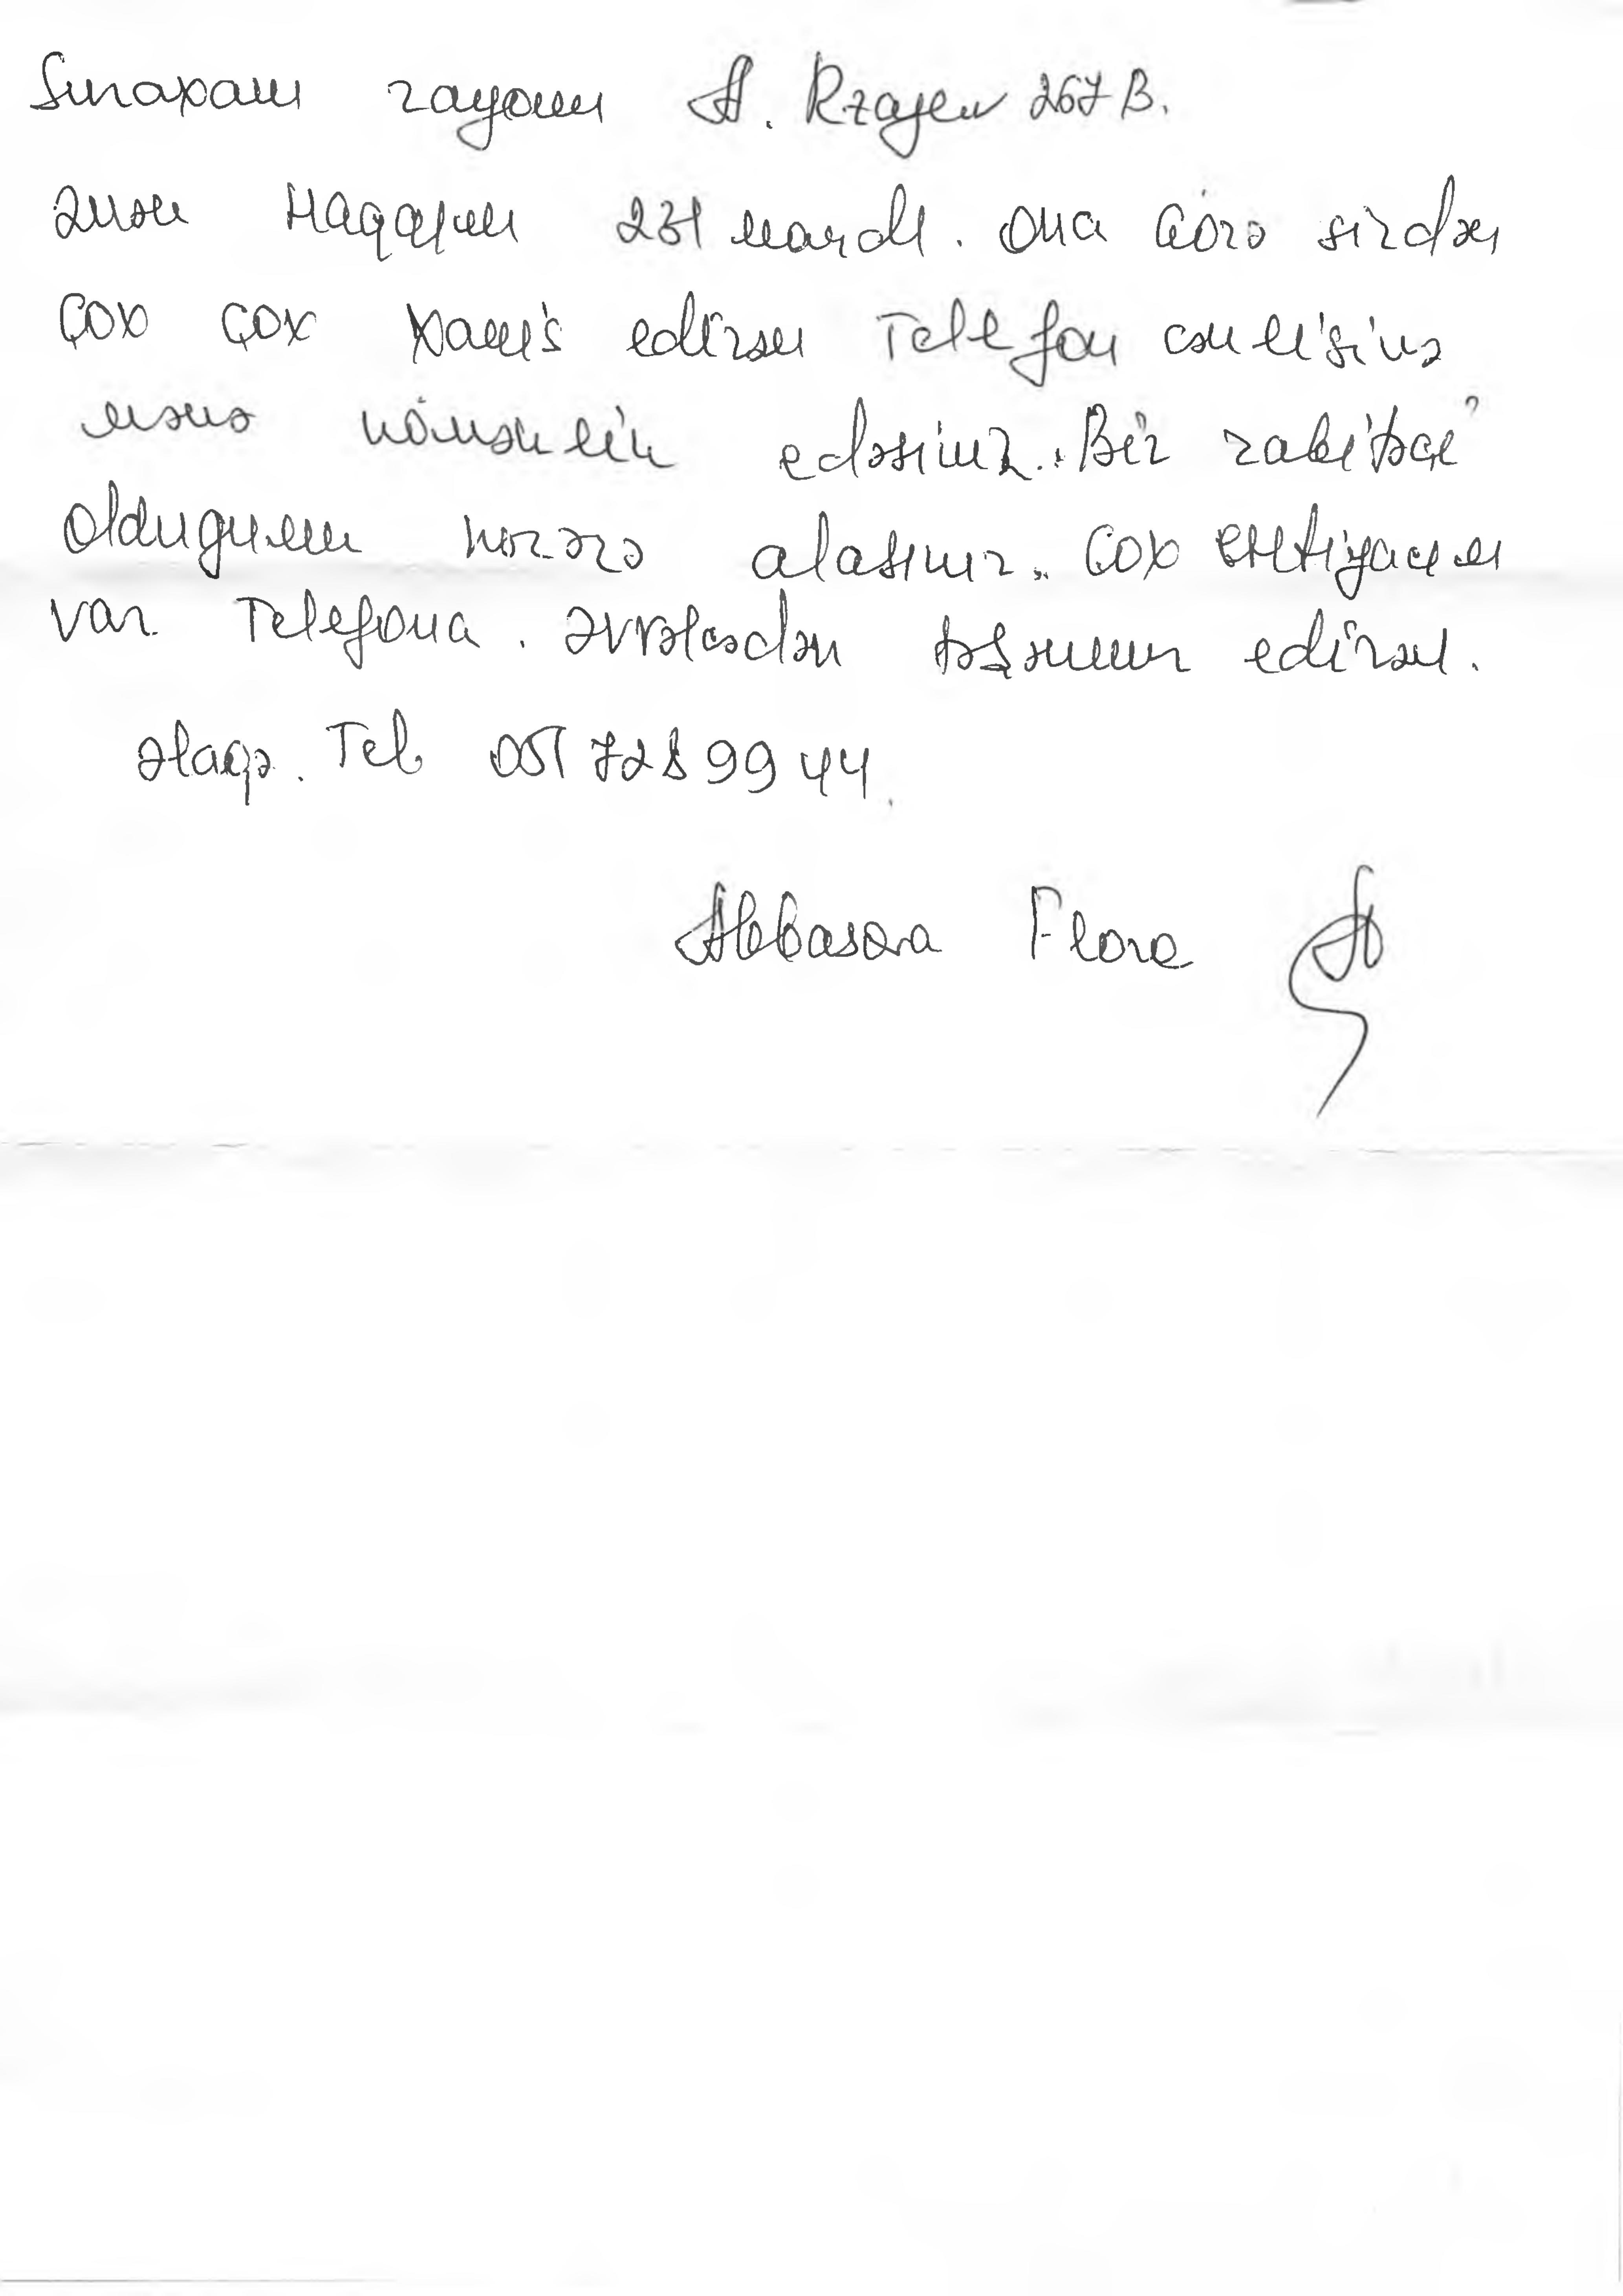 Suraxanı rayonu A. Rzayev 267 B.
Əmək Haqqım 231 manatdı. Ona Görə sizdən
Çox çox xahiş edirəm Telefon çəkilişinə
mənə köməklik edəsiniz. Bir rabitəçi
olduğumu nəzərə alasınız. Çox ehtiyacım
var Telefona. Əvvəlcədən təşəkkür edirəm.
Əlaqə. Tel 051 728 99 44.
Abbasova Flora